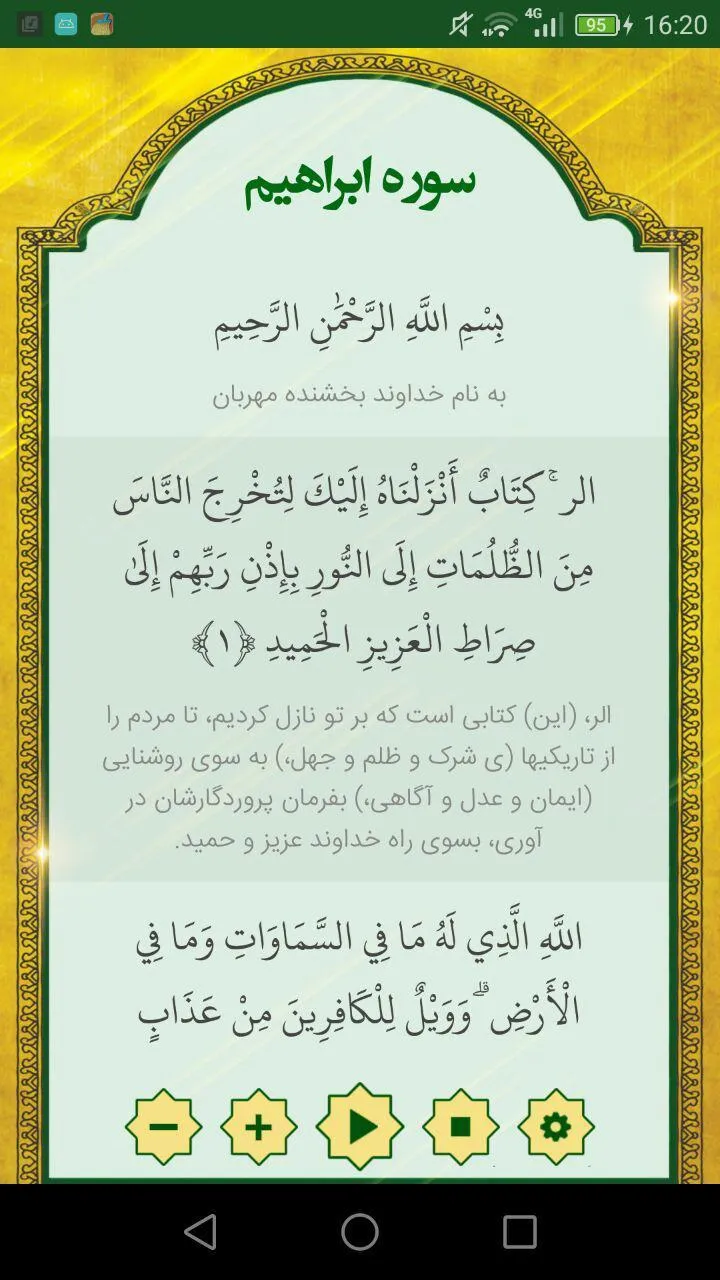 4G 95 16:20
سوره ابراهیم
بِسْمِ اللَّهِ الرَّحْمَٰنِ الرَّحِيمِ
به نام خداوند بخشنده مهربان
الر ۚ كِتَابٌ أَنْزَلْنَاهُ إِلَيْكَ لِتُخْرِجَ النَّاسَ
مِنَ الظُّلُمَاتِ إِلَى النُّورِ بِإِذْنِ رَبِّهِمْ إِلَىٰ
صِرَاطِ الْعَزِيزِ الْحَمِيدِ ﴿١﴾
الر، (این) کتابی است که بر تو نازل کردیم، تا مردم را
از تاریکیها (ی شرک و ظلم و جهل،) به سوی روشنایی
(ایمان و عدل و آگاهی،) بفرمان پروردگارشان در
آوری، بسوی راه خداوند عزیز و حمید.
اللَّهِ الَّذِي لَهُ مَا فِي السَّمَاوَاتِ وَمَا فِي
الْأَرْضِ ۗ وَوَيْلٌ لِلْكَافِرِينَ مِنْ عَذَابٍ